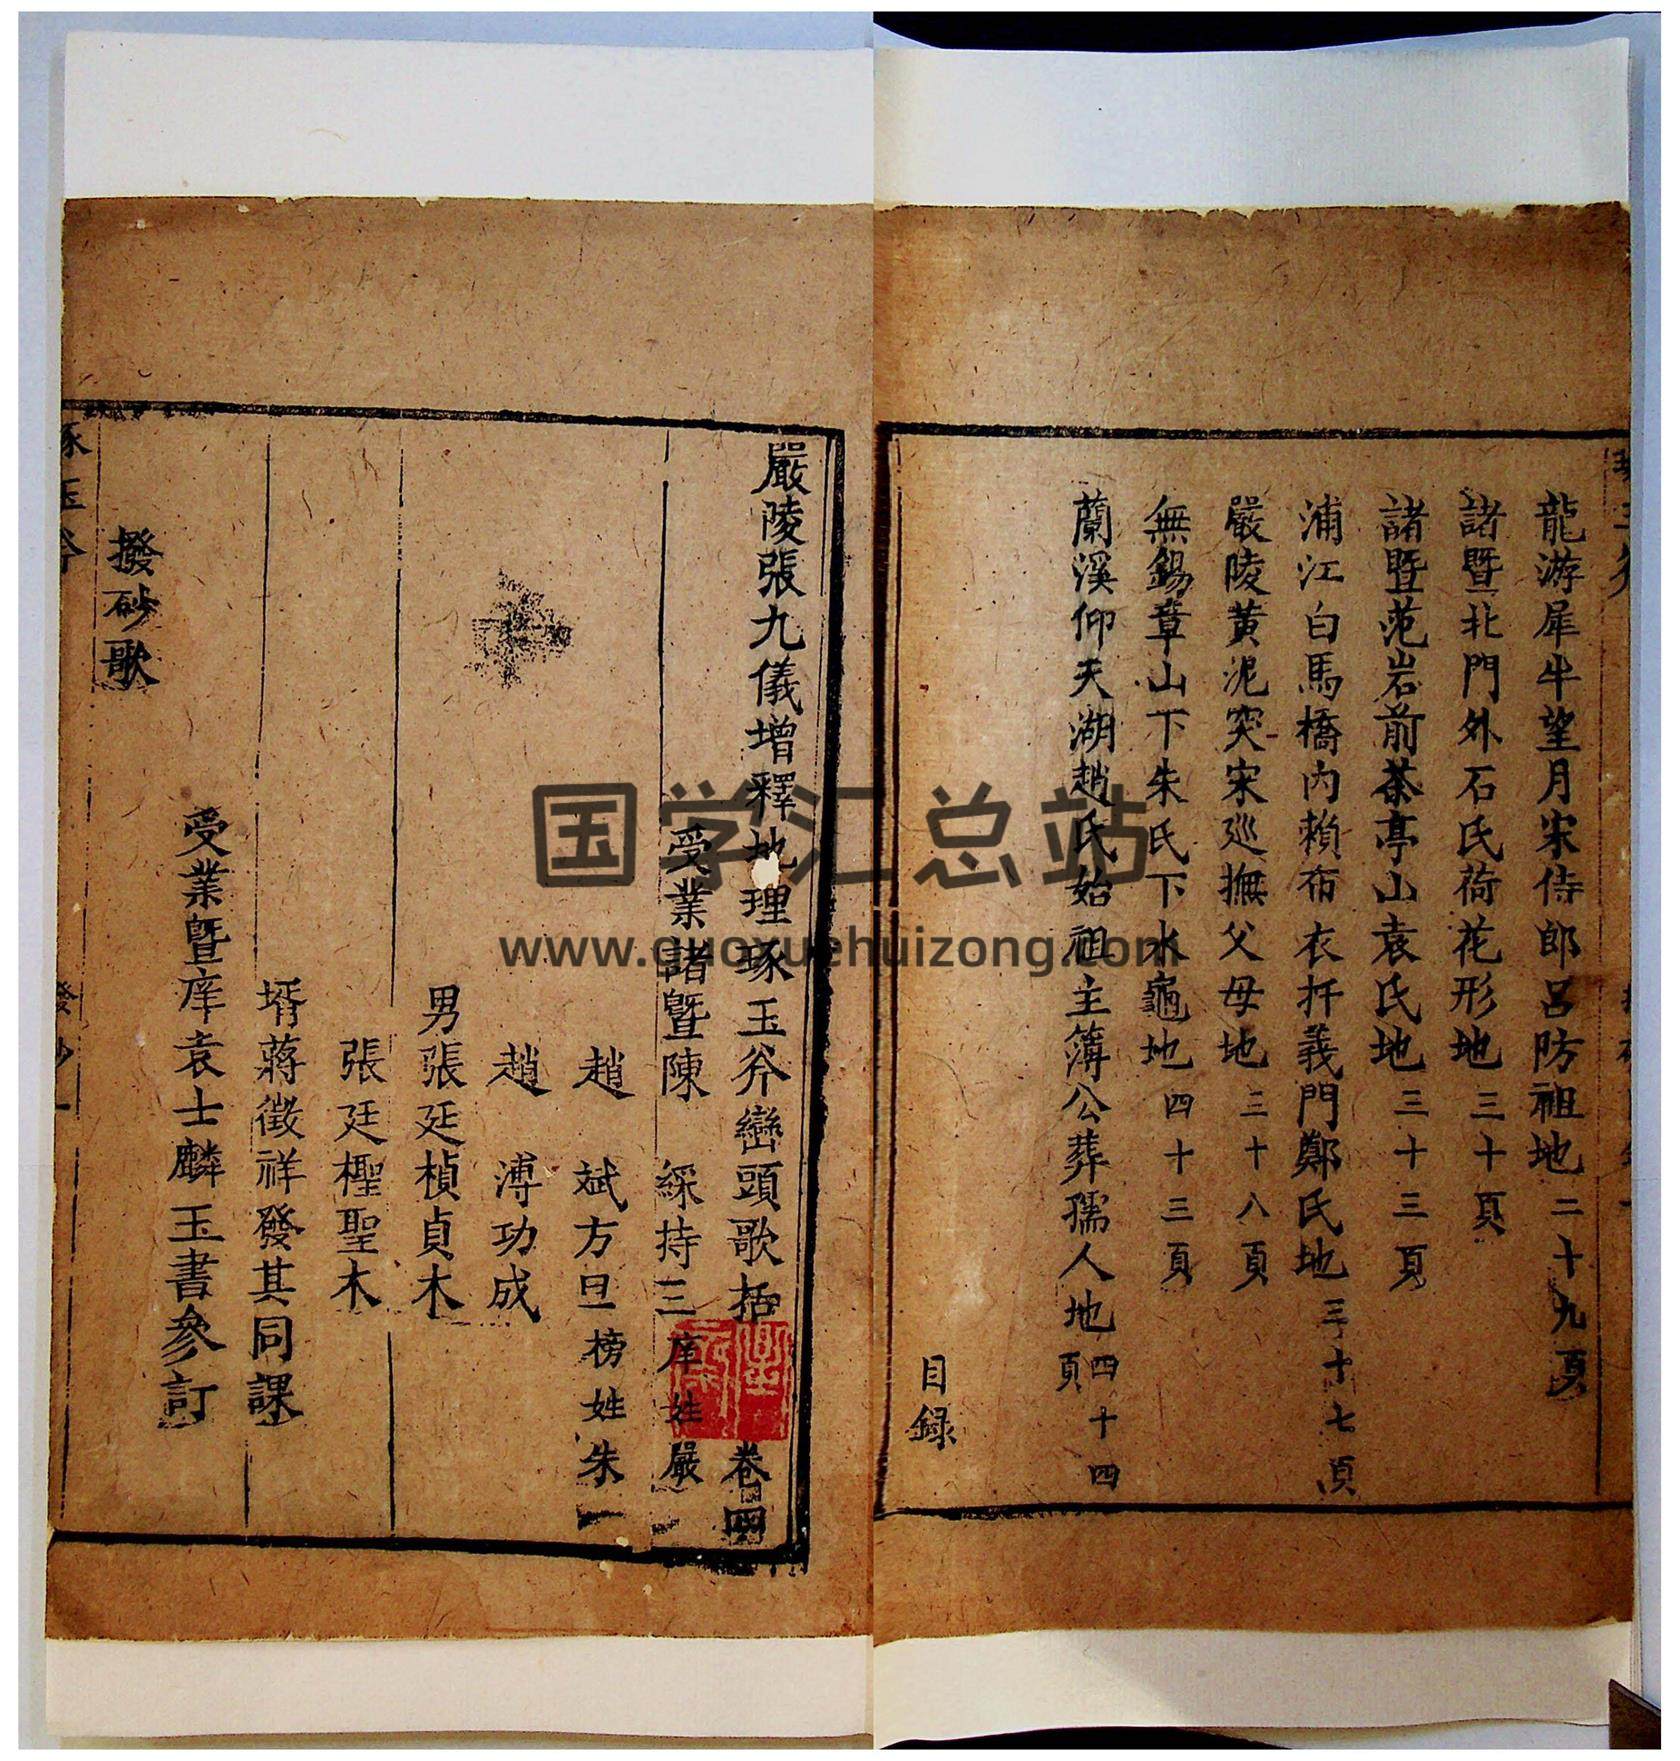 龍游犀牛望月宋侍郎呂防祖地二十九頁
諸暨北門外石氏荷花形地三十頁
諸暨范岩前茶亭山袁氏地三十三頁
浦江白馬橋內賴布衣扦義門鄭氏地三十七頁
嚴陵黃泥突宋廵撫父母地三十八頁
無錫章山下朱氏下水龜地四十三頁
蘭溪仰天湖趙氏始祖主簿公葬孺人地四十四頁
目録
嚴陵張九儀增釋地理琢玉斧巒頭歌括 卷四
受業諸暨陳 綵持三庠姓嚴
趙 斌方旦榜姓朱
趙 溥功成
男張廷楨貞木
張廷檉聖木
壻蔣徵祥發其同課
受業暨庠袁士麟玉書參訂
撥砂歌
琢玉斧
国学汇总站
www.guoxuehuizong.com